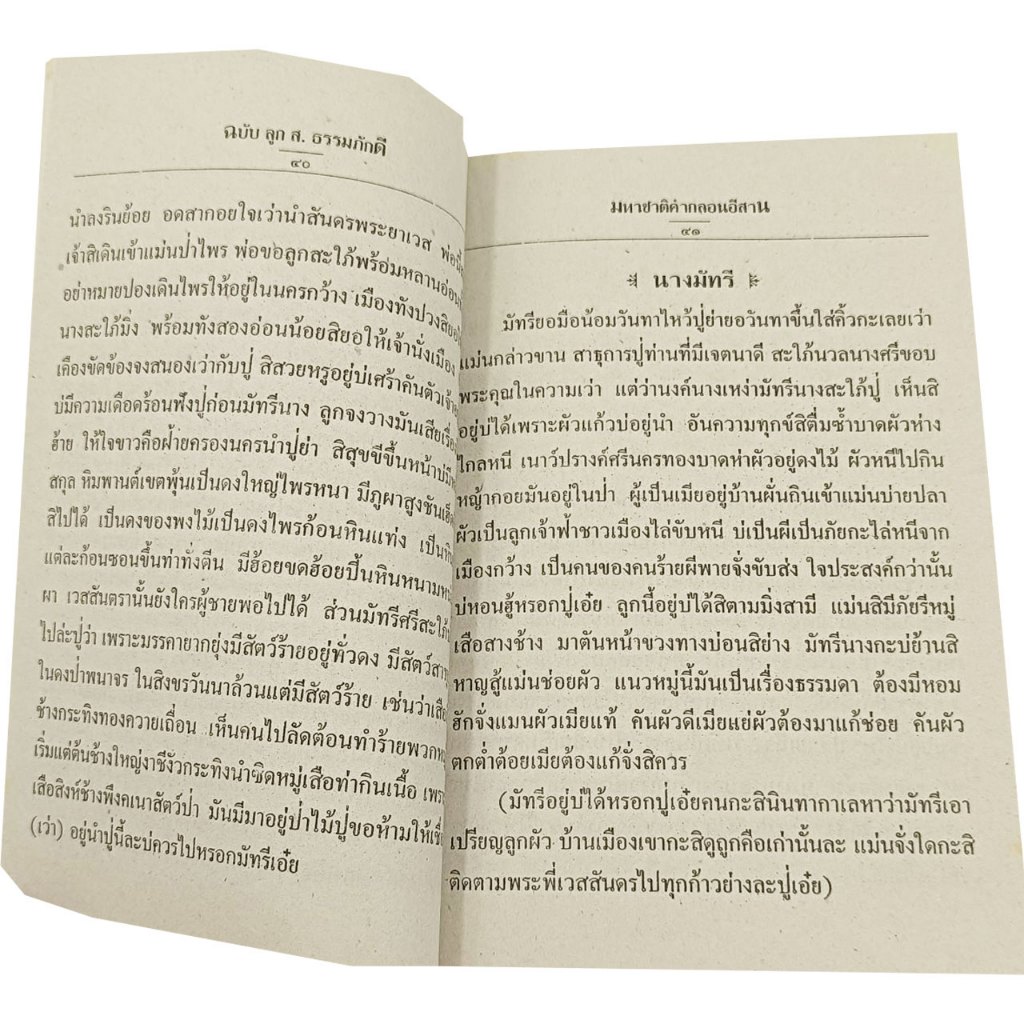 ฉบับ ลูก ส. ธรรมภักดี
๔๐
นำลงรินย้อย อดสากอยใจเว่านำสันดรพระยาเวส พ่อนี้
เจ้าสิเดินเข้าแม่นป่าไพร พ่อขอลูกสะใภ้พร้อมหลานอ่อน
อย่าหมายปองเดินไพรให้อยู่ในนครกว้าง เมืองทังปวงสิยอ
นางสะใภ้มิ่ง พร้อมทังสองอ่อนน้อยสิยอให้เจ้านั่งเมือง
เคืองขัดข้องจงสนองเว่ากับปู่ สิสวยหรูอยู่บ่เศร้าคันตัวเจ้า
บ่มีความเดือดร้อนฟังปู่ก่อนมัทรีนาง ลูกจงวางมันเสียเรื่อง
ฮ้าย ให้ใจขาวคือฝ้ายครองนครนำปู่ย่า สิสุขขีขึ้นหน้าบ่มี
สกุล หิมพานต์เขตพุ้นเป็นดงใหญ่ไพรหนา มีภูผาสูงชัน
สิไปได้ เป็นดงของพงไม้เป็นดงไพรก้อนหินแท่ง เป็น
แต่ละก้อนซอนขึ้นท่าทั่งตีน มีฮ้อยขดฮ้อยปี้นหินหนาม
ผา เวสสันตรานั้นยังใครผู้ชายพอไปได้ ส่วนมัทรีศรีสะใภ้
ไปล่ะปู่ว่า เพราะมรรคายากยุ่งมีสัตว์ร้ายอยู่ทั่วดง มีสัตว์
ในดงป่าพนาจร ในสิงขรวันนาล้วนแต่มีสัตว์ร้าย เช่นว่าเสือ
ช้างกระทิงทองควายเถื่อน เห็นคนไปลัดต้อนทำร้ายพวก
เริ่มแต่ต้นช้างใหญ่งาชีงัวกระทิงนำซิดหมู่เสือท่ากินเนื้อ
เสือสิงห์ช้างพึงคเนาสัตว์ป่า มันมีมาอยู่ป่าไม้ปู่ขอห้ามให้
(เว่า) อยู่นำปู่นี้ละบ่ควรไปหรอกมัทรีเอ๋ย
มหาชาติคำกลอนอีสาน
๔๑
นางมัทรี
มัทรียอมือน้อมวันทาไหว้ปู่ย่ายอวันทาขึ้นใส่คิ้วกะเลยเว่า
แม่นกล่าวขาน สาธุการปู่ท่านที่มีเจตนาดี สะใภ้นวลนางศรีขอบ
พระคุณในความเว่า แต่ว่านงค์นางเหง่ามัทรีนางสะใภ้ปู่ เห็นสิ
อยู่บ่ได้เพราะผัวแก้วบ่อยู่นำ อันความทุกข์สิตื่มซ้ำบาดผัวห่าง
ไกลหนี เนาว์ปรางค์ศรีนครทองบาดห่าผัวอยู่ดงไม้ ผัวหนีไปกิน
หญ้ากอยมันอยู่ในป่า ผู้เป็นเมียอยู่บ้านผั่นกินเข้าแม่นบ่ายปลา
ผัวเป็นลูกเจ้าฟ้าชาวเมืองไล่ขับหนี บ่เป็นผีเป็นภัยกะไล่หนีจาก
เมืองกว้าง เป็นคนของคนร้ายผีพายจั่งขับส่ง ใจประสงค์กว่านั้น
บ่หอนฮู้หรอกปู่เอ๋ย ลูกนี้อยู่บ่ได้สิตามมิ่งสามี แม่นสิมีภัยรีหมู่
เสือสางช้าง มาตันหน้าขวงทางบ่อนสิย่าง มัทรีนางกะบ่ย้านสิ
หาญสู้แม่นช่อยผัว แนวหมู่นี้มันเป็นเรื่องธรรมดา ต้องมีหอม
ฮักจั่งแมนผัวเมียแท้ คันผัวดีเมียแย่ผัวต้องมาแก้ช่อย คันผัว
ตกต่ำต้อยเมียต้องแก้จั่งสิควร
(มัทรีอยู่บ่ได้หรอกปู่เอ๋ยคนกะสินินทากาเลหาว่ามัทรีเอา
เปรียญลูกผัว บ้านเมืองเขากะสิดูถูกคือเก่านั้นละ แม่นจั่งใดกะสิ
ติดตามพระพี่เวสสันดรไปทุกก้าวย่างละปู่เอ๋ย)